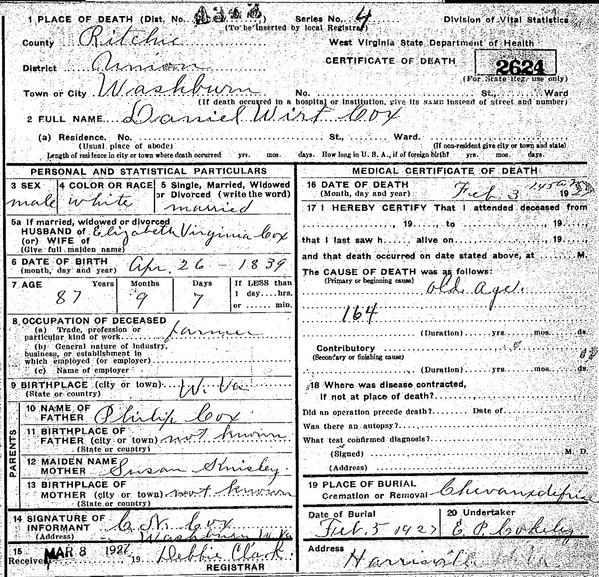 1 PLACE OF DEATH (Dist. No. Series No. 4 Division of Vital Statistics
(To be inserted by local Registrar)
County Ritchie West Virginia State Department of Health
District Union CERTIFICATE OF DEATH 2624
(For State Reg. use only)
Town or City Washburn No. St., Ward
(If death occurred in a hospital or institution, give its NAME instead of street and number)
2 FULL NAME Daniel Wirt Cox
(a) Residence. No. St., Ward.
(Usual place of abode) (If non-resident give city or town and state)
Length of residence in city or town where death occurred yrs. mos. days. How long in U. S. A., if of foreign birth? yrs. mos. days.
PERSONAL AND STATISTICAL PARTICULARS
3 SEX 4 COLOR OR RACE 5 Single, Married, Widowed
or Divorced (write the word)
male white married
5a If married, widowed or divorced
HUSBAND OF Elizabeth Virginia Cox
(or) WIFE of
(Give full maiden name)
6 DATE OF BIRTH Apr. 26 - 1839
(month, day and year)
7 AGE Years Months Days If LESS than
87 9 7 1 day....hrs.
or ...... min.
8 OCCUPATION OF DECEASED
(a) Trade, profession or
particular kind of work farmer
(b) General nature of industry,
business, or establishment in
which employed (or employer)
(c) Name of employer
9 BIRTHPLACE (city or town) W. Va
(State or country)
PARENTS
10 NAME OF
FATHER Philip Cox
11 BIRTHPLACE OF
FATHER (city or town) not known
(State or country)
12 MAIDEN NAME
MOTHER Susan Knisley
13 BIRTHPLACE OF
MOTHER (city or town) not known
(State or country)
14 SIGNATURE OF
INFORMANT C. N. Cox
(Address) Washburn W Va
15 MAR 8 1927
Received , 19 Debbie Clark
REGISTRAR
MEDICAL CERTIFICATE OF DEATH
16 DATE OF DEATH Feb 3 19
(Month, day and year)
17 I HEREBY CERTIFY That I attended deceased from
, 19 , to , 19
that I last saw h alive on , 19
and that death occurred on date stated above, at M.
The CAUSE OF DEATH was as follows:
(Primary or beginning cause) old age
164
(Duration) yrs. mos. ds.
Contributory
(Secondary or finishing cause)
(Duration) yrs. mos. days.
18 Where was disease contracted,
if not at place of death?
Did an operation precede death? Date of
Was there an autopsy?
What test confirmed diagnosis?
(Signed) M. D.
(Address)
19 PLACE OF BURIAL
Cremation or Removal Chevauxdefrise
Date of Burial 20 Undertaker
Feb. 5 1927 E. P. Cokeley
Address Harrisville W Va